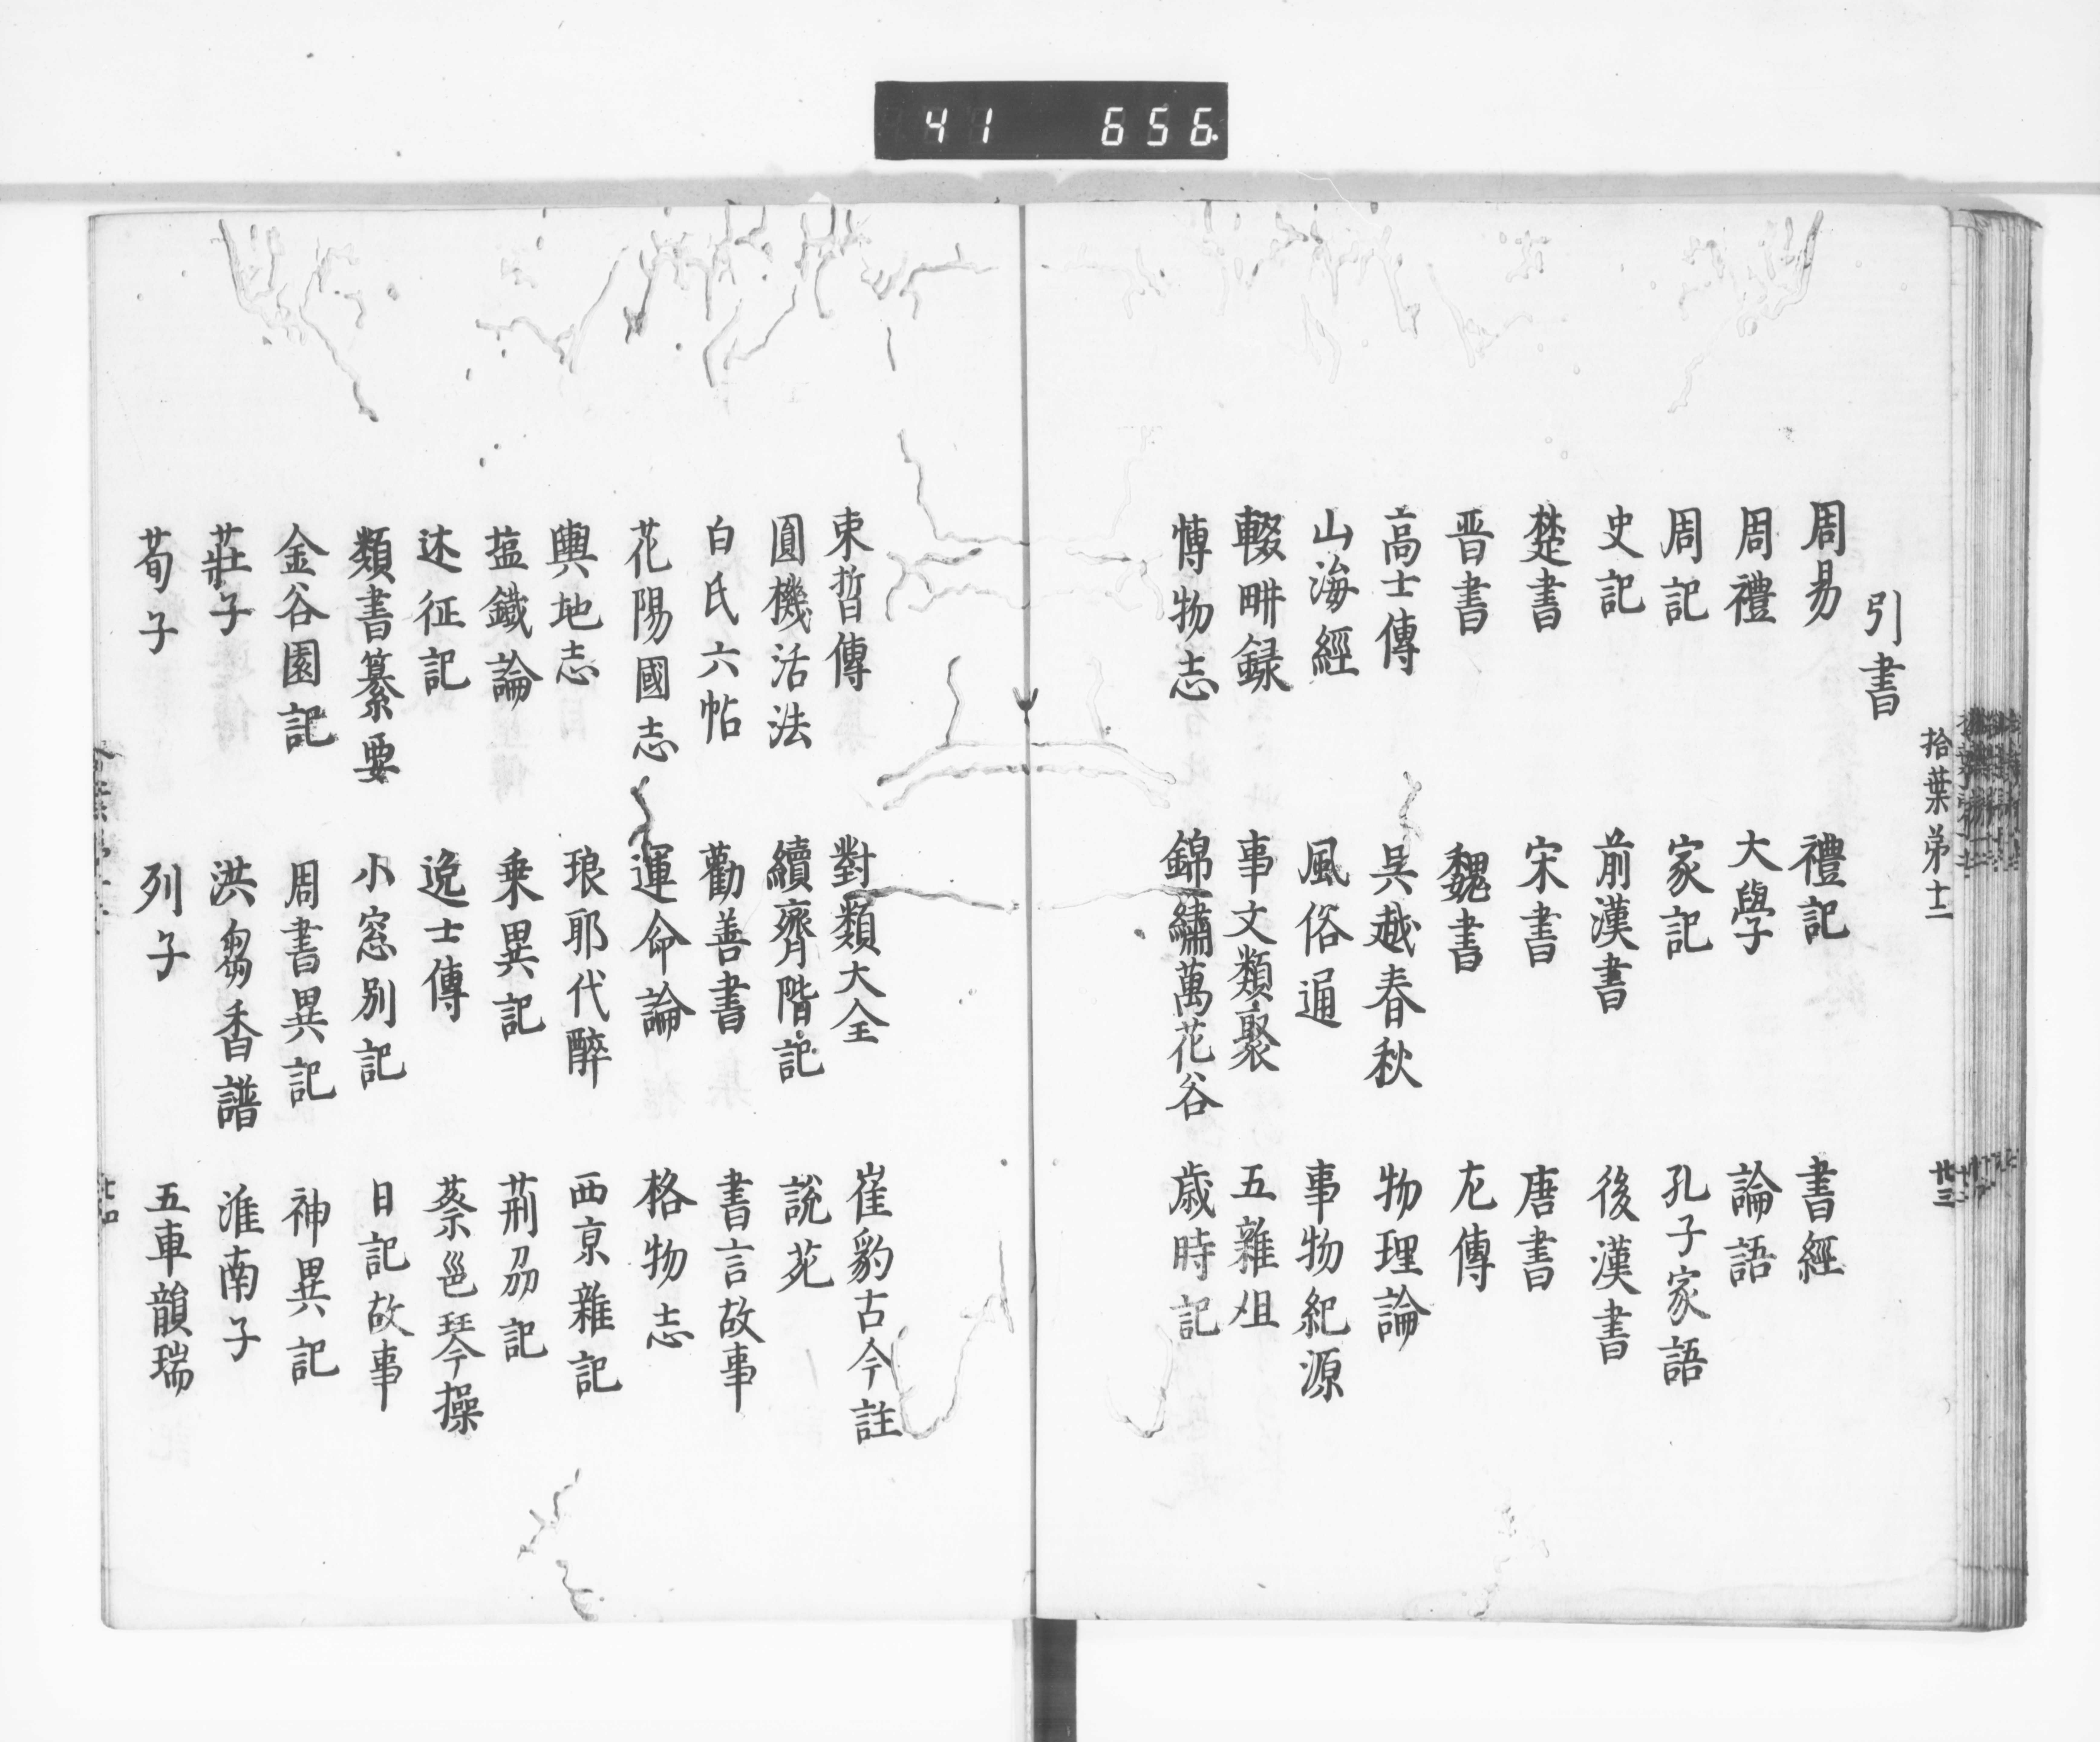 41 656
拾葉弟十一
廿三
引書
周易 禮記 書經
周禮 大學 論語
周記 家記 孔子家語
史記 前漢書 後漢書
楚書 宋書 唐書
晋書 魏書 左傳
高士傳 吳越春秋 物理論
山海經 風俗通 事物紀源
輟畊録 事文類聚 五雜俎
博物志 錦繡萬花谷 歳時記
束晢傳 對類大全 崔豹古今註
圓機活法 續齊階記 說苑
白氏六帖 勸善書 書言故事
花陽國志 運命論 格物志
輿地志 琅耶代醉 西京雜記
塩鐵論 乗異記 荊刕記
述征記 逸士傳 蔡邕琴操
類書纂要 小窓別記 日記故事
金谷園記 周書異記 神異記
莊子 洪芻香譜 淮南子
荀子 列子 五車韻瑞